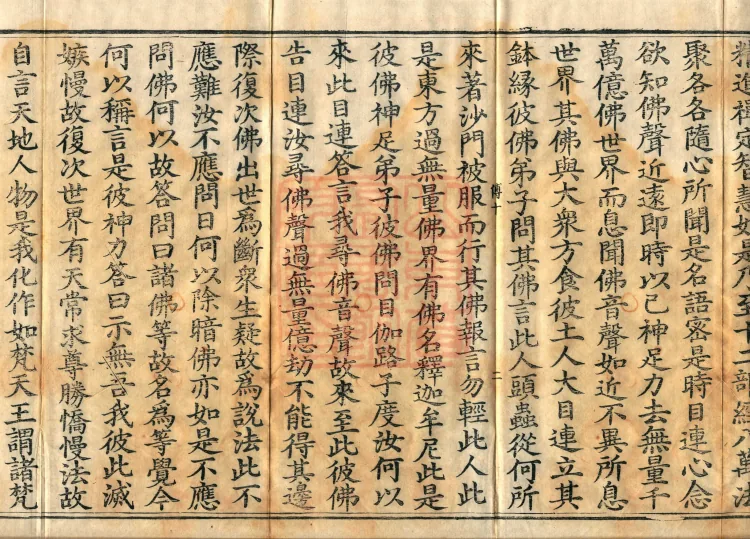 精進禪定智慧如是乃至十二部經八萬法
聚各各隨心所聞是名語密是時目連心念
欲知佛聲近遠即時以己神足力去無量千
萬億佛世界而息聞佛音聲如近不異所息
世界其佛與大衆方食彼土人大目連立其
鉢緣彼佛弟子問其佛言此人頭蟲從何所
來著沙門被服而行其佛報言勿輕此人此
傅十 二
是東方過無量佛界有佛名釋迦牟尼此是
彼佛神足弟子彼佛問目伽路子度汝何以
來此目連答言我尋佛音聲故來至此彼佛
告目連汝尋佛聲過無量億劫不能得其邊
際復次佛出世爲斷衆生疑故爲說法此不
應難汝不應問日何以除暗佛亦如是不應
問佛何以故答問曰諸佛等故名爲等覺今
何以稱言是彼神力答曰示無吾我彼此滅
嫉慢故復次世界有天常求尊勝憍慢法故
自言天地人物是我化作如梵天王謂諸梵